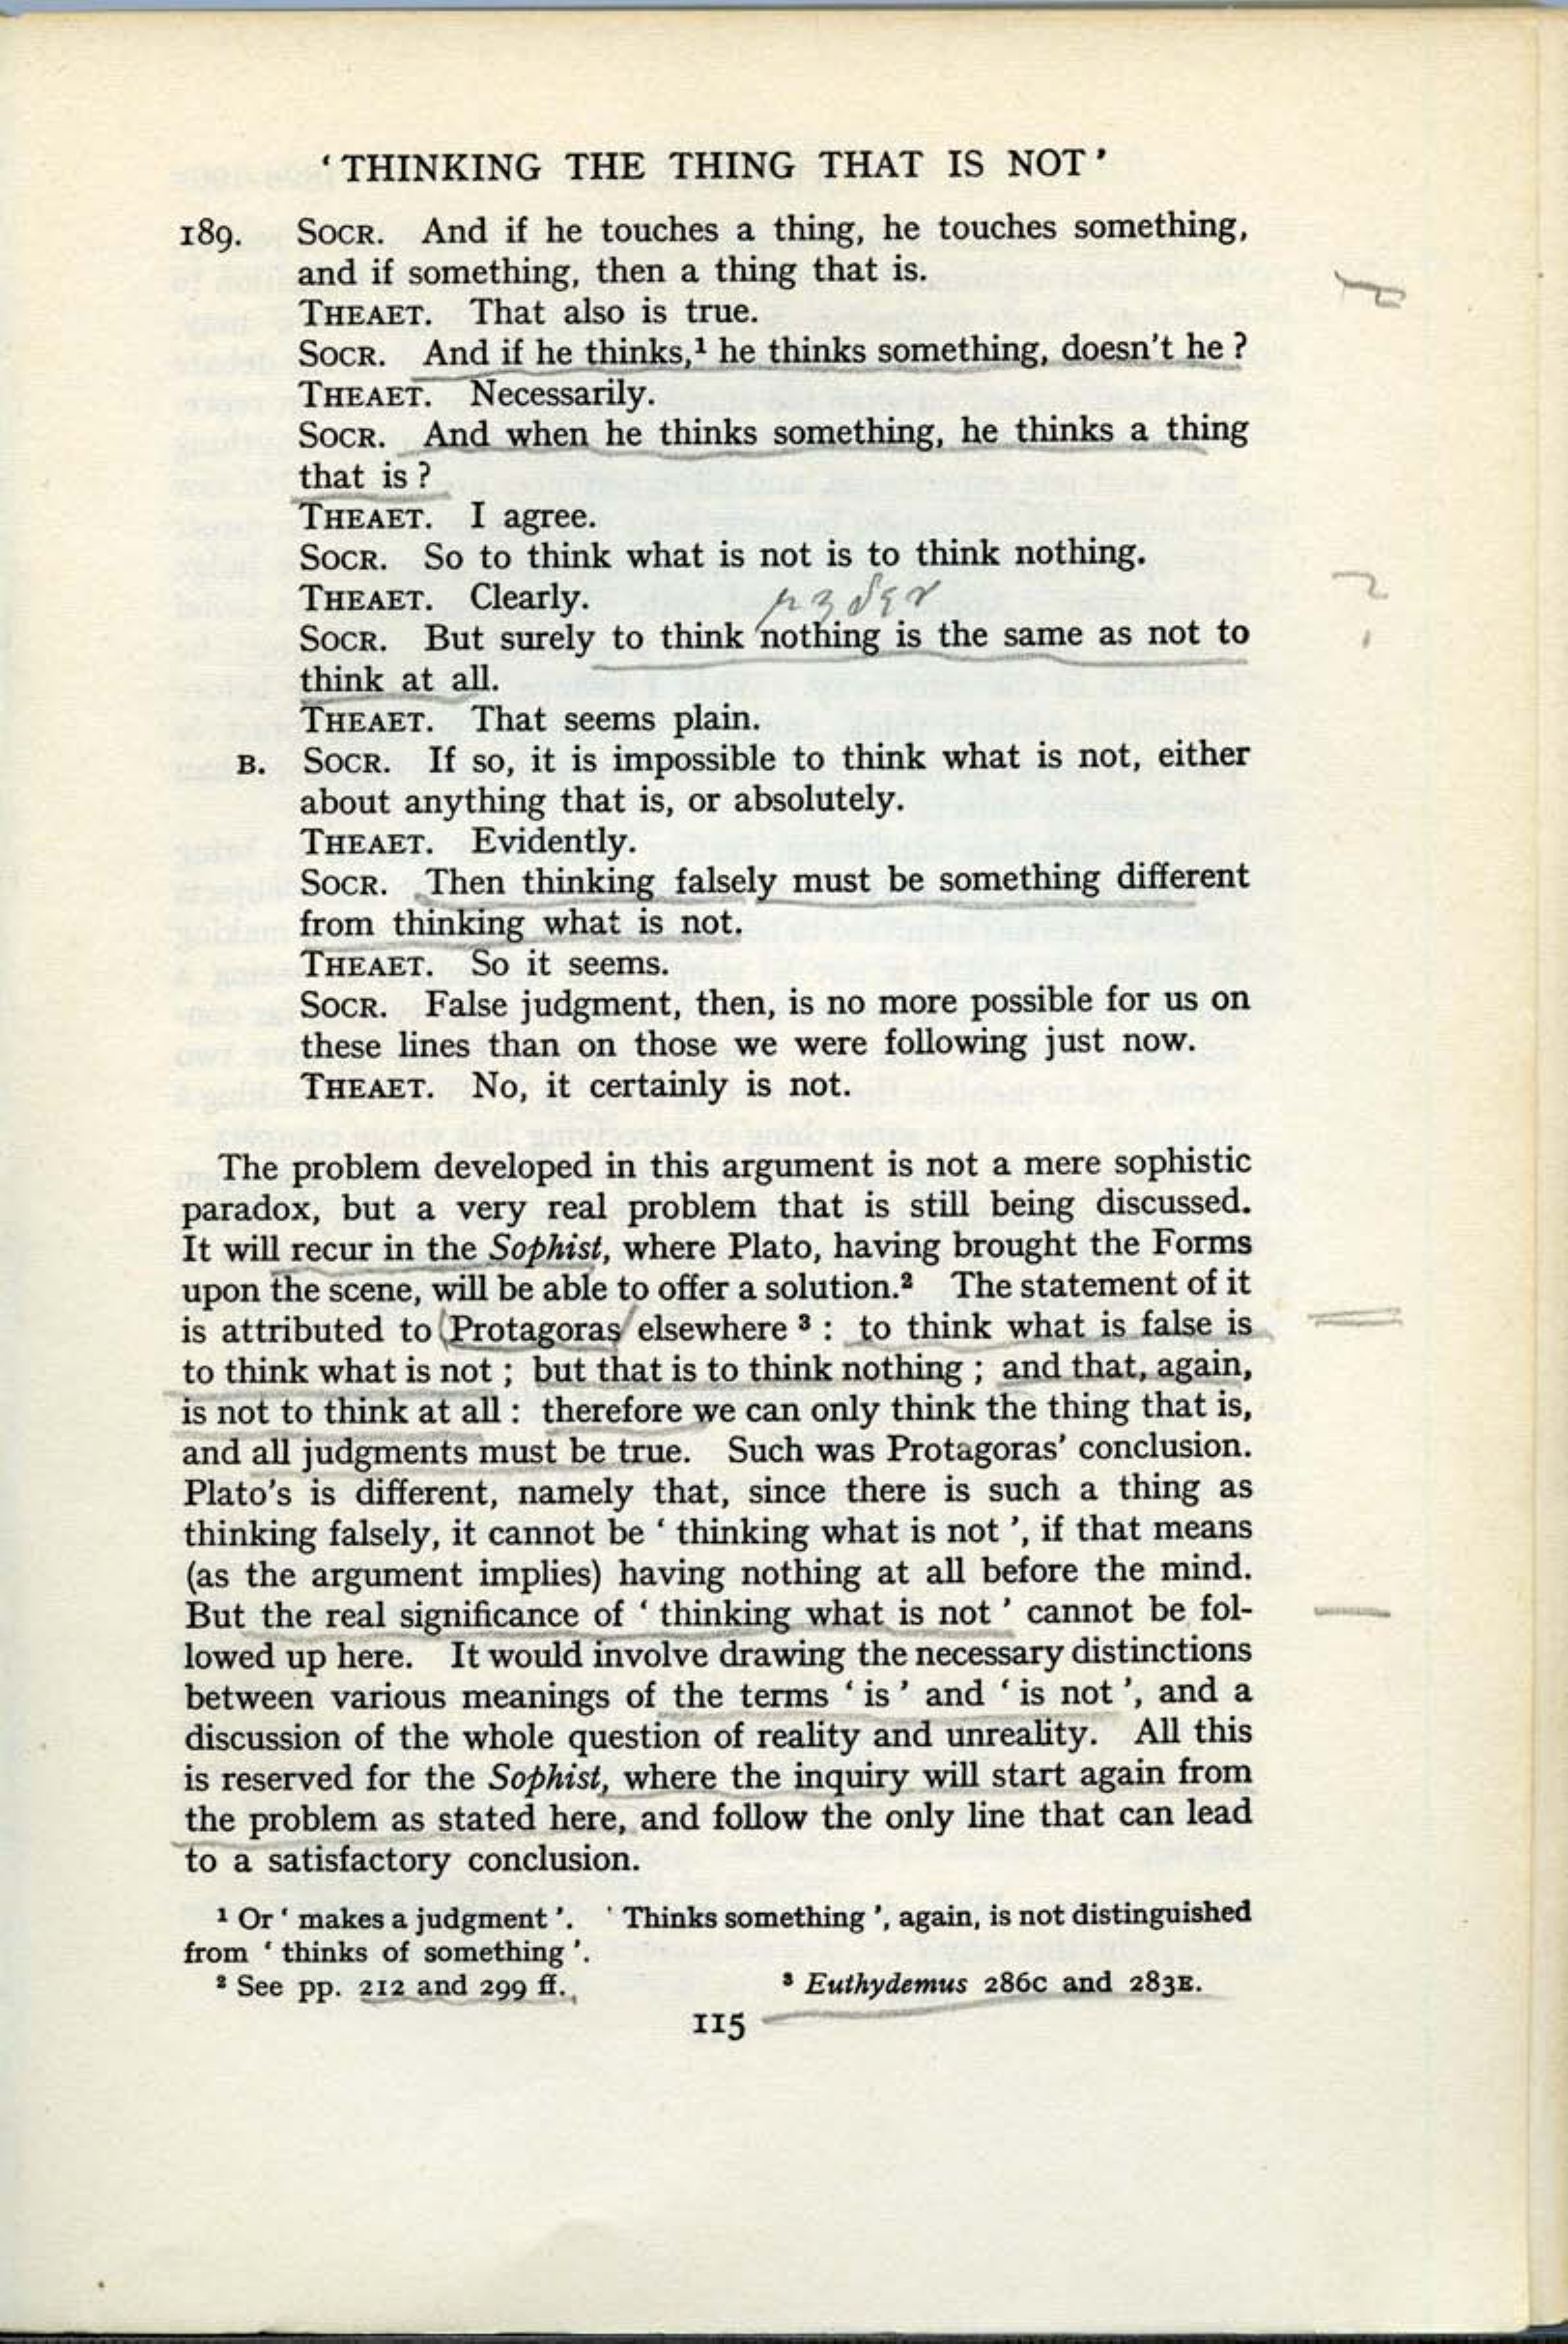 ‘THINKING THE THING THAT IS NOT’
189. SOCR. And if he touches a thing, he touches something,
and if something, then a thing that is.
THEAET. That also is true.
SOCR. And if he thinks,¹ he thinks something, doesn't he ?
THEAET. Necessarily.
SOCR. And when he thinks something, he thinks a thing
that is ?
THEAET. I agree.
SOCR. So to think what is not is to think nothing.
THEAET. Clearly.
SOCR. But surely to think nothing is the same as not to
think at all.
THEAET. That seems plain.
B. SOCR. If so, it is impossible to think what is not, either
about anything that is, or absolutely.
THEAET. Evidently.
SOCR. Then thinking falsely must be something different
from thinking what is not.
THEAET. So it seems.
SOCR. False judgment, then, is no more possible for us on
these lines than on those we were following just now.
THEAET. No, it certainly is not.
The problem developed in this argument is not a mere sophistic
paradox, but a very real problem that is still being discussed.
It will recur in the Sophist, where Plato, having brought the Forms
upon the scene, will be able to offer a solution.² The statement of it
is attributed to (Protagoras) elsewhere ³ : to think what is false is
to think what is not ; but that is to think nothing ; and that, again,
is not to think at all : therefore we can only think the thing that is,
and all judgments must be true. Such was Protagoras’ conclusion.
Plato’s is different, namely that, since there is such a thing as
thinking falsely, it cannot be ‘ thinking what is not ’, if that means
(as the argument implies) having nothing at all before the mind.
But the real significance of ‘ thinking what is not ’ cannot be fol-
lowed up here. It would involve drawing the necessary distinctions
between various meanings of the terms ‘ is ’ and ‘ is not ’, and a
discussion of the whole question of reality and unreality. All this
is reserved for the Sophist, where the inquiry will start again from
the problem as stated here, and follow the only line that can lead
to a satisfactory conclusion.
¹ Or ‘ makes a judgment ’. ‘ Thinks something ’, again, is not distinguished
from ‘ thinks of something ’.
² See pp. 212 and 299 ff. ³ Euthydemus 286C and 283E.
115